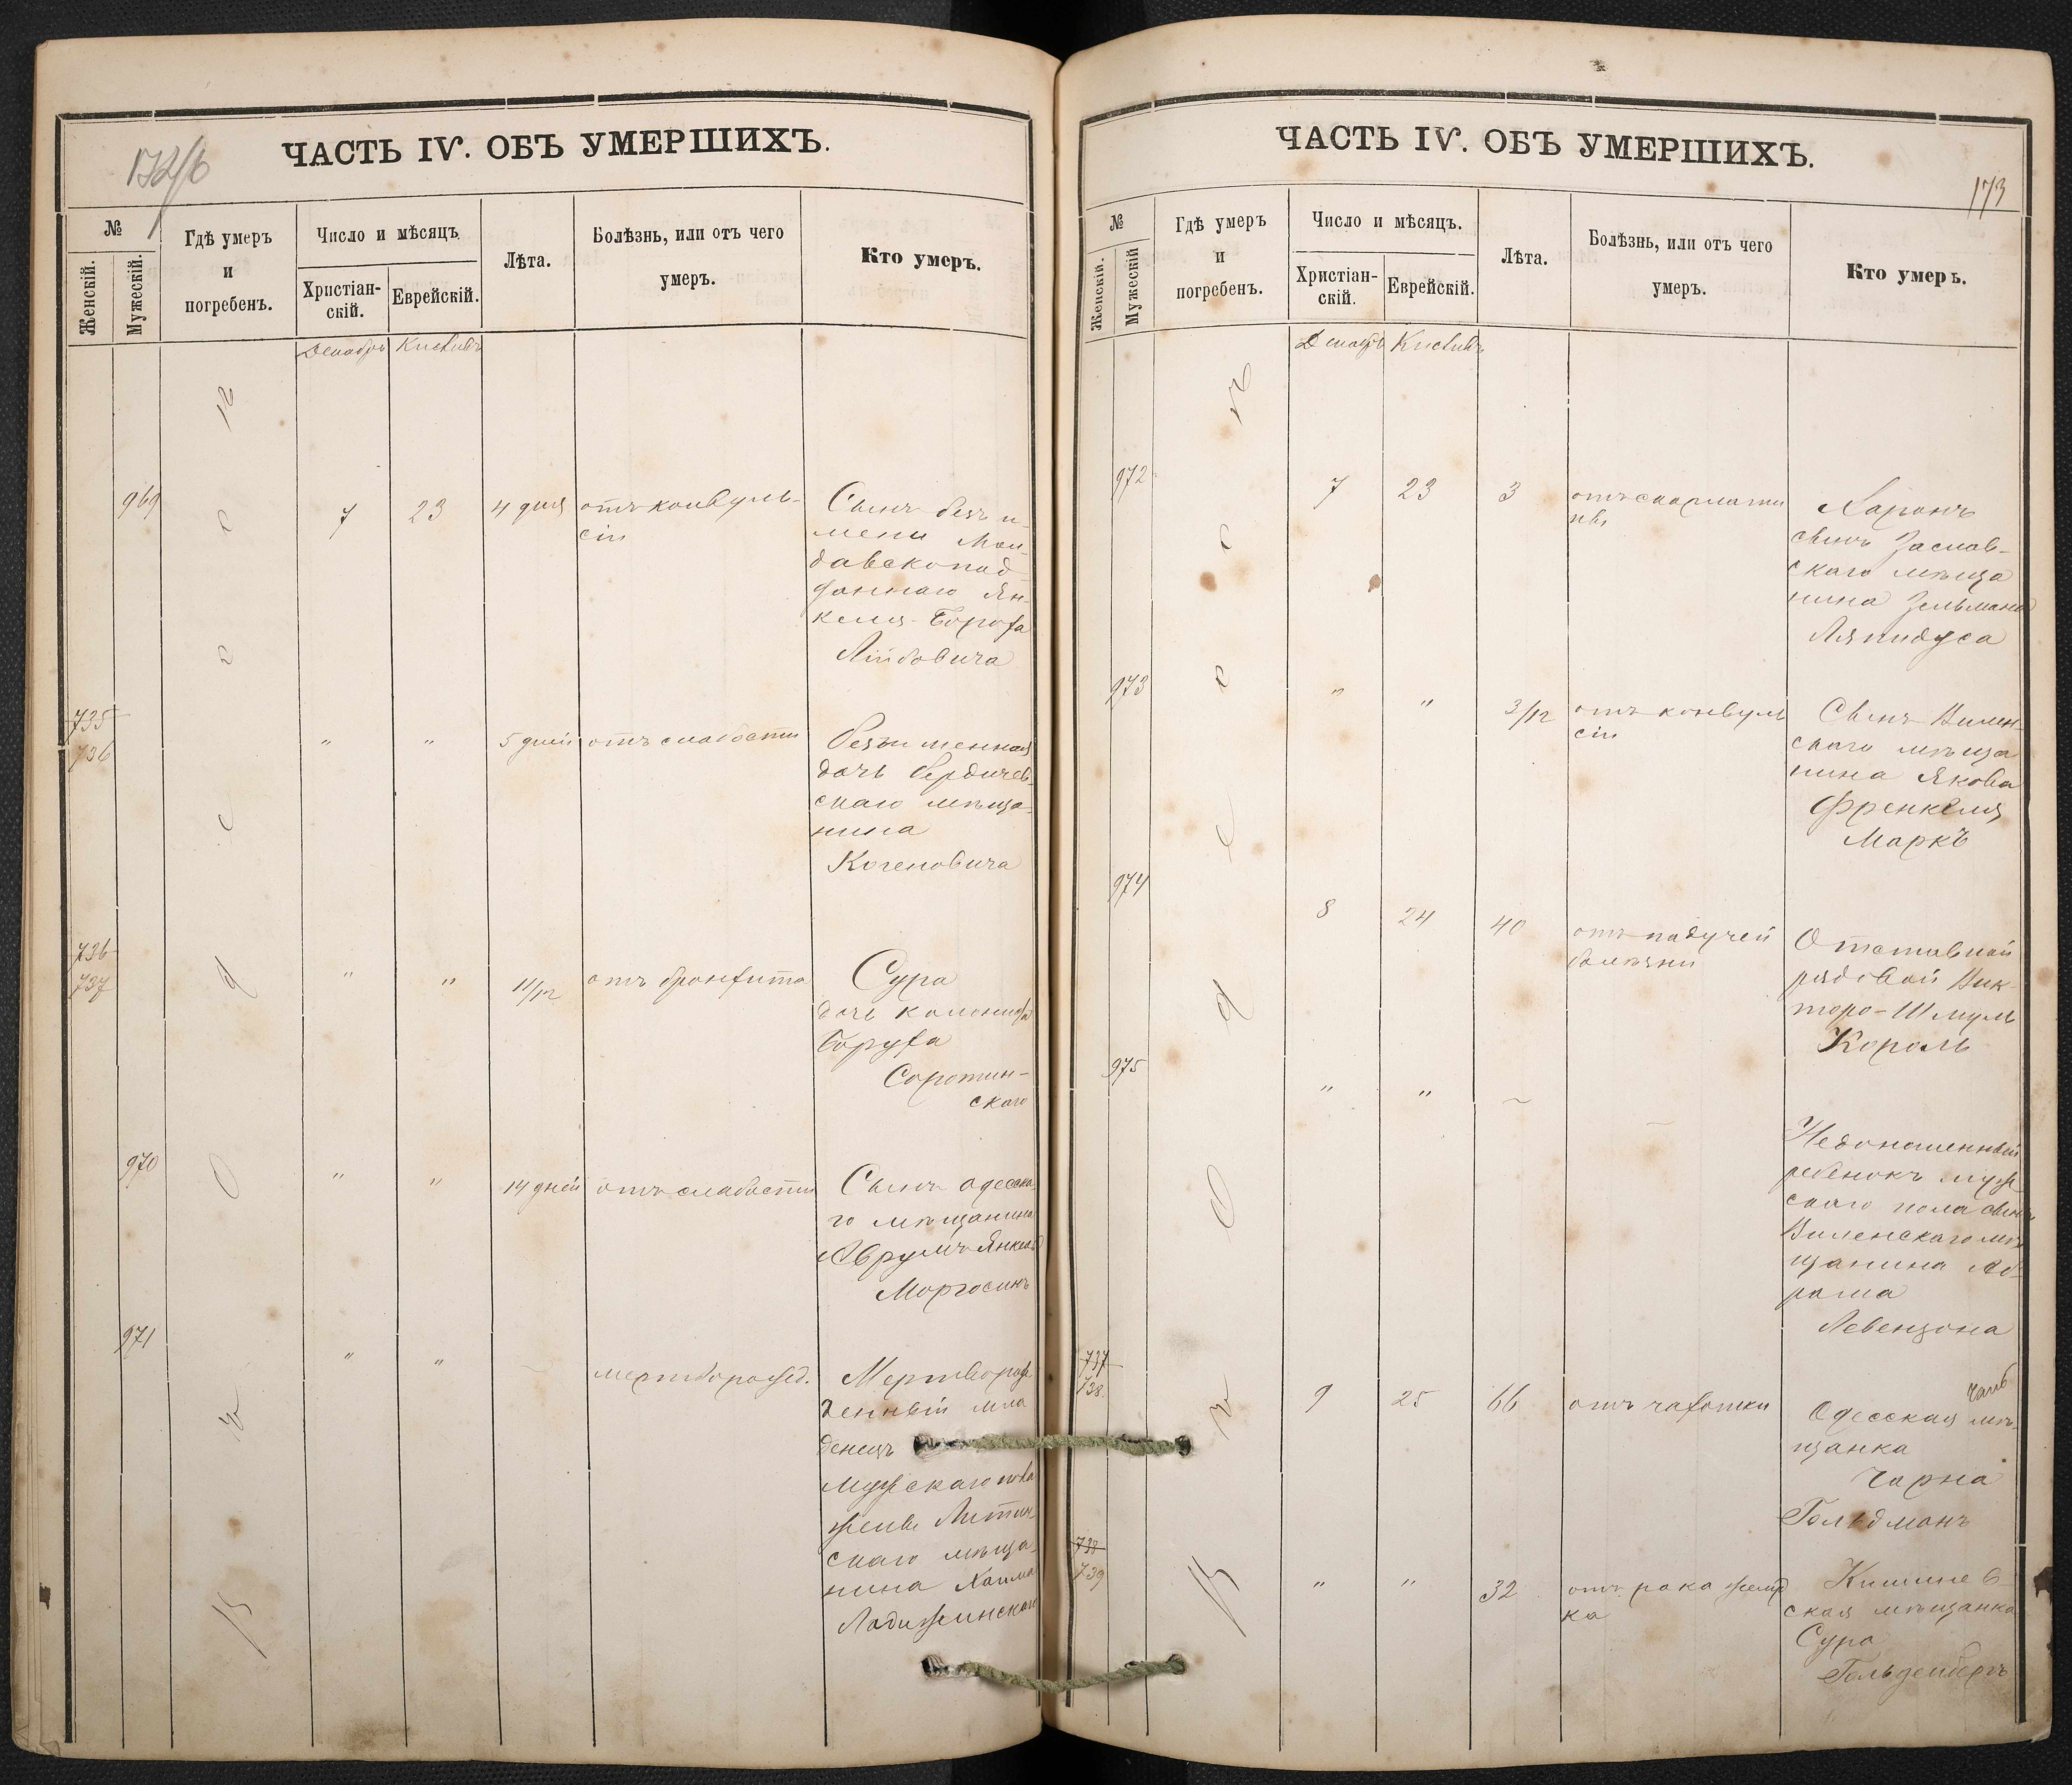 ЧАСТЬ IV. ОБЪ УМЕРШИХЪ.
№
Женскій.
Мужескій.
Гдѣ умеръ
и
погребенъ.
Число и мѣсяцъ.
Христіан-
скій.
Еврейскій.
Лѣта.
Болѣзнь, или отъ чего
умеръ.
Кто умеръ.
Декабрь Кислив
969
7
23
4 дня
отъ конвуль-
сіи
Сынъ безъ и-
мени Мол-
давскопод-
даннаго Ян-
келя-Бороха
Лейбовича
735
736
"
"
5 дней
отъ слабости
безъименная
дочь бердичев-
скаго мѣща-
нина
Когеновича
736
737
"
"
11/12
отъ бронхита
Сура
дочь колониста
Боруха
Соротин-
скаго
970
"
"
14 дней
отъ слабости
Сынъ одесска-
го мѣщанина
Аврумъ Янкель
Моргосинъ
971
"
"
мертворожд.
Мертворож-
денный мла
денецъ
мужскаго пола
жены Литин-
скаго мѣща-
нина Хаима
Ладижинскаго
В г О д е с с ѣ
ЧАСТЬ IV. ОБЪ УМЕРШИХЪ.
173
№
Женскій.
Мужескій
Гдѣ умеръ
и
погребенъ.
Число и мѣсяцъ.
Христіан-
скій.
Еврейскій.
Лѣта.
Болѣзнь, или отъ чего
умеръ.
Кто умеръ.
Декабрь Кислив
972
7
23
3
отъ скарлати
ны
Харонъ
сынъ Заслав-
скаго мѣща
нина Зельмана
Ляпидуса
973
"
"
3/12
отъ конвуль
сіи
Сынъ Вилен-
скаго мѣща
нина Якова
Френкеля
Маркъ
974
8
24
40
отъ падучей
болѣзни
Отставной
рядовой Вик-
торо-Шмуль
Король
975
"
"
Недоношенный
ребенокъ муж
скаго пола сынъ
Виленскаго мѣ
щанина Аб-
рама
Левензона
737
738.
9
25
66
отъ чахотки
Одесская мѣ-
щанка
Чарна
Гольдманъ
738
739
"
"
32
отъ рака желуд
ка
Кишинев-
ская мѣщанка
Сура
Гольденбергъ